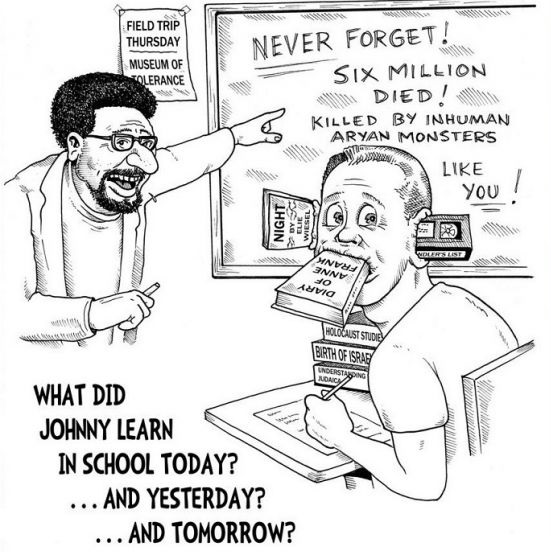 FIELD TRIP
THURSDAY
MUSEUM OF
TOLERANCE
NEVER FORGET!
SIX MILLION
DIED!
KILLED BY INHUMAN
ARYAN MONSTERS
LIKE
YOU!
NIGHT
BY
ELIE
WIESEL
DIARY
OF
ANNE
FRANK
NDLER'S LIST
HOLOCAUST STUDIE
BIRTH OF ISRAE
UNDERSTANDING
JUDAICA
WHAT DID
JOHNNY LEARN
IN SCHOOL TODAY?
...AND YESTERDAY?
...AND TOMORROW?